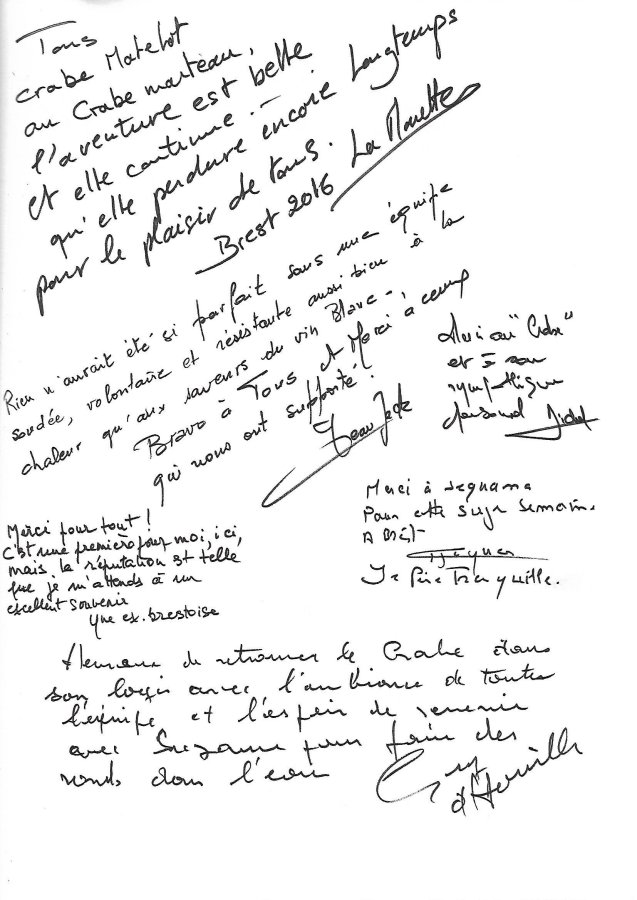 Tous
crabe Matelot
au Crabe marteau,
l'aventure est belle
et elle continue.-
qu'elle perdure encore Longtemps
pour le plaisir de tous.
Brest 2016 La Mouette
Rien n'aurait été si parfait sans une équipe
soudée, volontaire et résistante aussi bien à la
chaleur qu'aux saveurs du vin Blanc-,
Bravo à Tous et Merci à ceux
qui nous ont supporté!
Merci au "Crabe"
et à son
sympathique
personnel Michel
Merci pour tout!
C'est une première pour moi, ici,
mais la réputation est telle
que je m'attends à un
excellent souvenir
Une ex. brestoise
Merci à
Pour cette super semaine
A
Le Père Tranquille.
Heureux de retrouver le Crabe dans
son logis avec l'ambiance de toute
l'équipe et l'espoir de revenir
avec Suzanne pour faire des
ronds dans l'eau
Guy